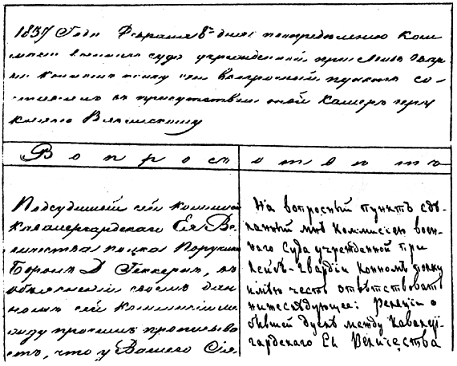 1837 Года Февраля 8 дня по определенію Ком-
мисіи военнаго суда учрежденной при Лейбъ Гвар-
ди Конномъ полку сей вопросный пунктъ со-
ставленъ въ присутствіи оной Камеръ-Юнк
Князю Вяземскому
Вопросъ
Подсудимый сей коммисіи
Кавалергардскаго Ея Ве-
личества полка Поручикъ
Баронъ Д Геккеренъ, въ
объясненіи своемъ дан-
номъ сей Коммисіи
между прочимъ прописыва-
етъ, что у Вашего Сія-
отвѣтъ
На вопросный пунктъ сдѣ-
ланный мнѣ Коммисіею воен-
наго Суда учрежденной при
Лейбъ-Гвардіи Конномъ полку
имѣю честь отвѣтствовать
нижеслѣдующее: Реляціи о
бывшей дуэли между Кавалер-
гардскаго Ея Величества